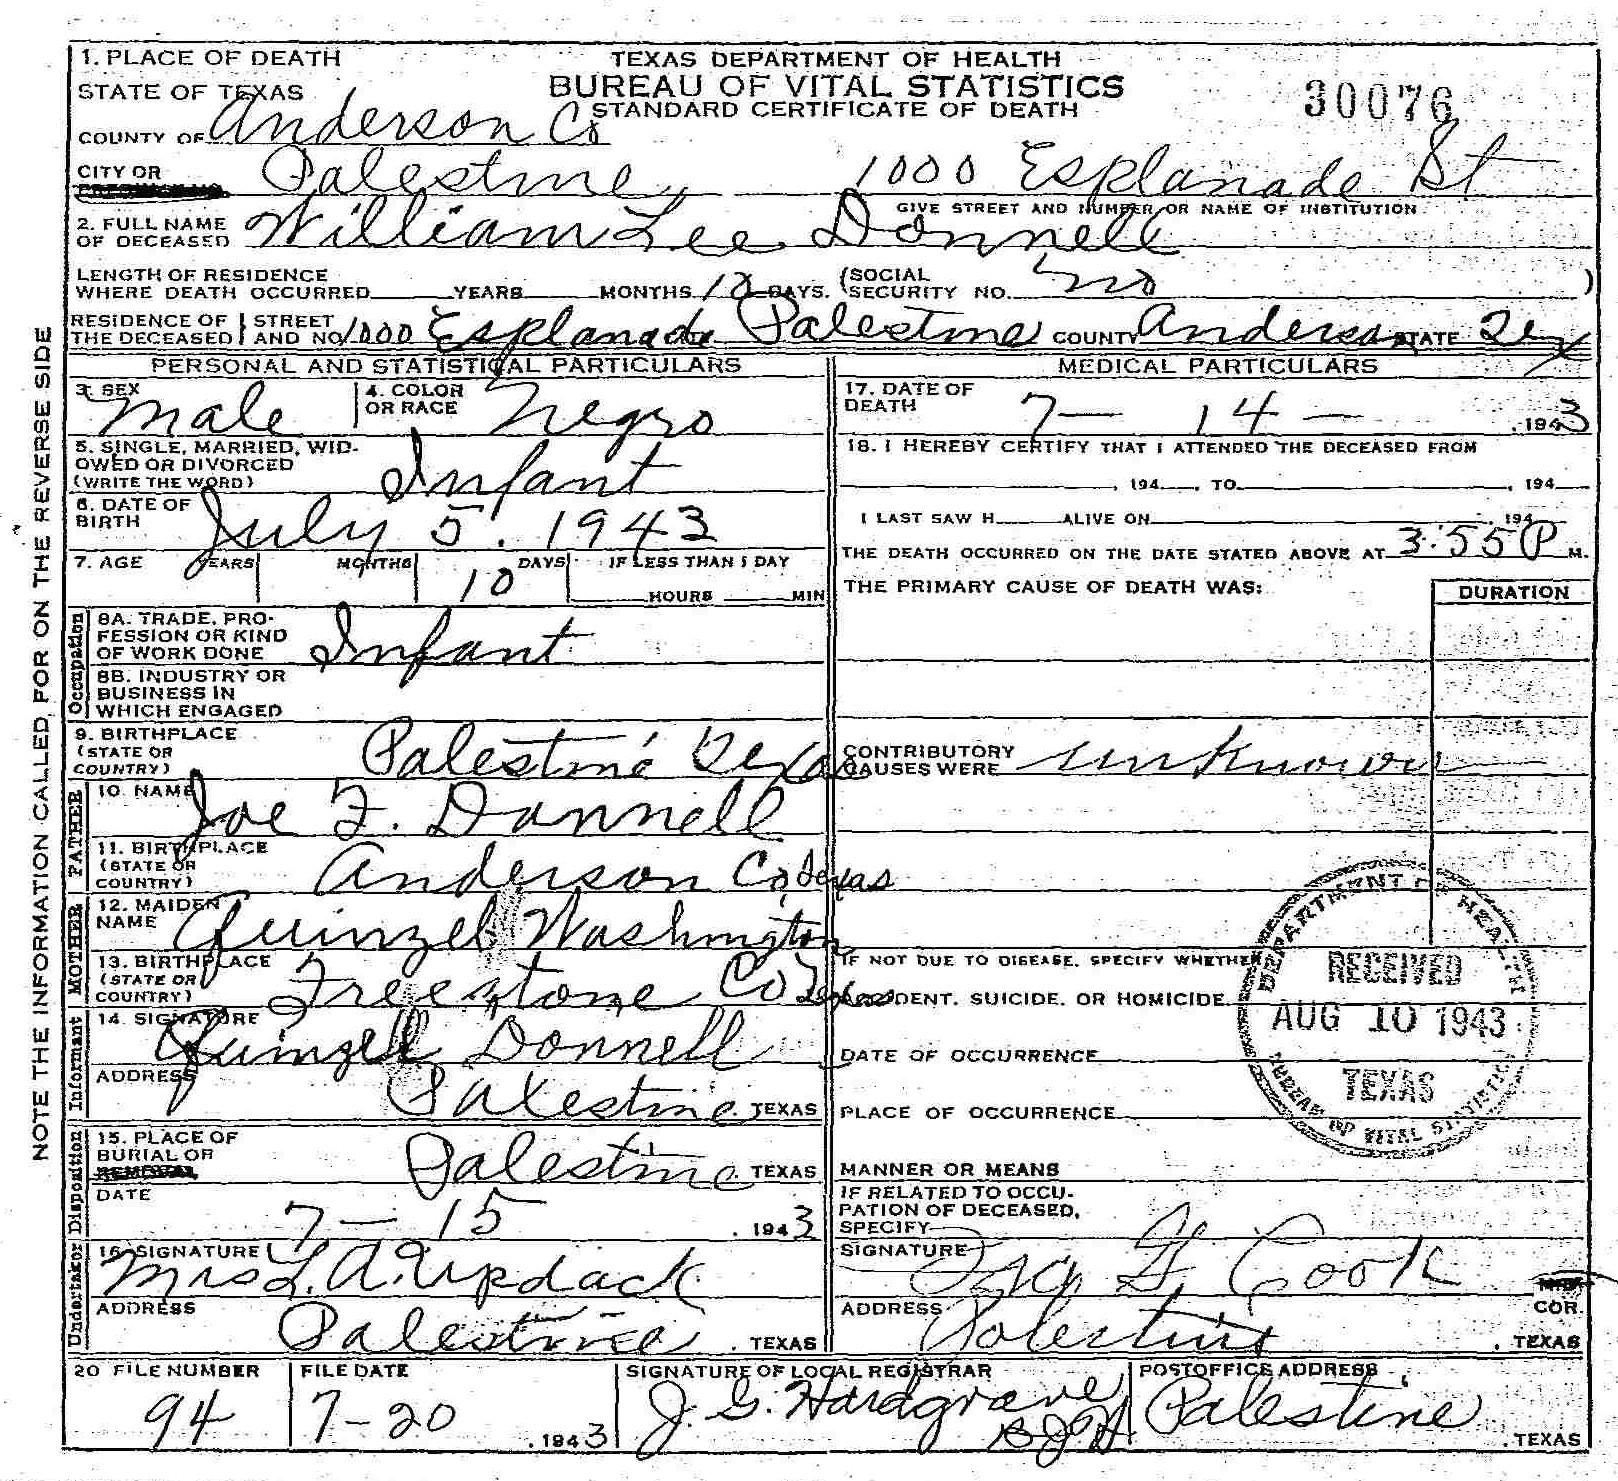 1. PLACE OF DEATH
TEXAS DEPARTMENT OF HEALTH
STATE OF TEXAS
BUREAU OF VITAL STATISTICS
STANDARD CERTIFICATE OF DEATH
30076
COUNTY OF Anderson Co
CITY OR Palestine 1000 Esplanade St
GIVE STREET AND NUMBER OR NAME OF INSTITUTION
2. FULL NAME OF DECEASED William Lee Donnell
LENGTH OF RESIDENCE
WHERE DEATH OCCURRED YEARS MONTHS 10 DAYS. (SOCIAL SECURITY NO. no )
RESIDENCE OF THE DECEASED STREET AND NO. 1000 Esplanade Palestine COUNTY Anderson STATE Tex
PERSONAL AND STATISTICAL PARTICULARS
3. SEX Male 4. COLOR OR RACE Negro
5. SINGLE, MARRIED, WIDOWED OR DIVORCED
(WRITE THE WORD) Infant
6. DATE OF BIRTH July 5. 1943
7. AGE YEARS MONTHS 10 DAYS IF LESS THAN 1 DAY
HOURS MIN
Occupation
8A. TRADE, PROFESSION OR KIND OF WORK DONE Infant
8B. INDUSTRY OR BUSINESS IN WHICH ENGAGED
9. BIRTHPLACE (STATE OR COUNTRY) Palestine Texas
FATHER
10. NAME Joe F. Donnell
11. BIRTHPLACE (STATE OR COUNTRY) Anderson Co, Texas
MOTHER
12. MAIDEN NAME Quinzel Washington
13. BIRTHPLACE (STATE OR COUNTRY) Freestone Co Texas
Informant
14. SIGNATURE Quinzell Donnell
ADDRESS Palestine. TEXAS
Disposition
15. PLACE OF BURIAL OR REMOVAL Palestine. TEXAS
DATE 7-15 . 1943
Undertaker
16. SIGNATURE Mrs L. A. Updack
ADDRESS Palestine . TEXAS
MEDICAL PARTICULARS
17. DATE OF DEATH 7- 14 - . 1943
18. I HEREBY CERTIFY THAT I ATTENDED THE DECEASED FROM
, 194 , TO , 194
I LAST SAW H ALIVE ON 194
THE DEATH OCCURRED ON THE DATE STATED ABOVE AT 3:55 P M.
THE PRIMARY CAUSE OF DEATH WAS: DURATION
CONTRIBUTORY CAUSES WERE unknown
IF NOT DUE TO DISEASE, SPECIFY WHETHER
ACCIDENT, SUICIDE, OR HOMICIDE
DATE OF OCCURRENCE
PLACE OF OCCURRENCE
MANNER OR MEANS
IF RELATED TO OCCUPATION OF DECEASED, SPECIFY
SIGNATURE G. Cook
COR.
ADDRESS Palestine . TEXAS
DEPARTMENT OF HEALTH
RECEIVED
AUG 10 1943
TEXAS
BUREAU OF VITAL STATISTICS
20 FILE NUMBER 94
FILE DATE 7-20 . 1943
SIGNATURE OF LOCAL REGISTRAR J. G. Hardgrave
POSTOFFICE ADDRESS Palestine . TEXAS
NOTE THE INFORMATION CALLED FOR ON THE REVERSE SIDE